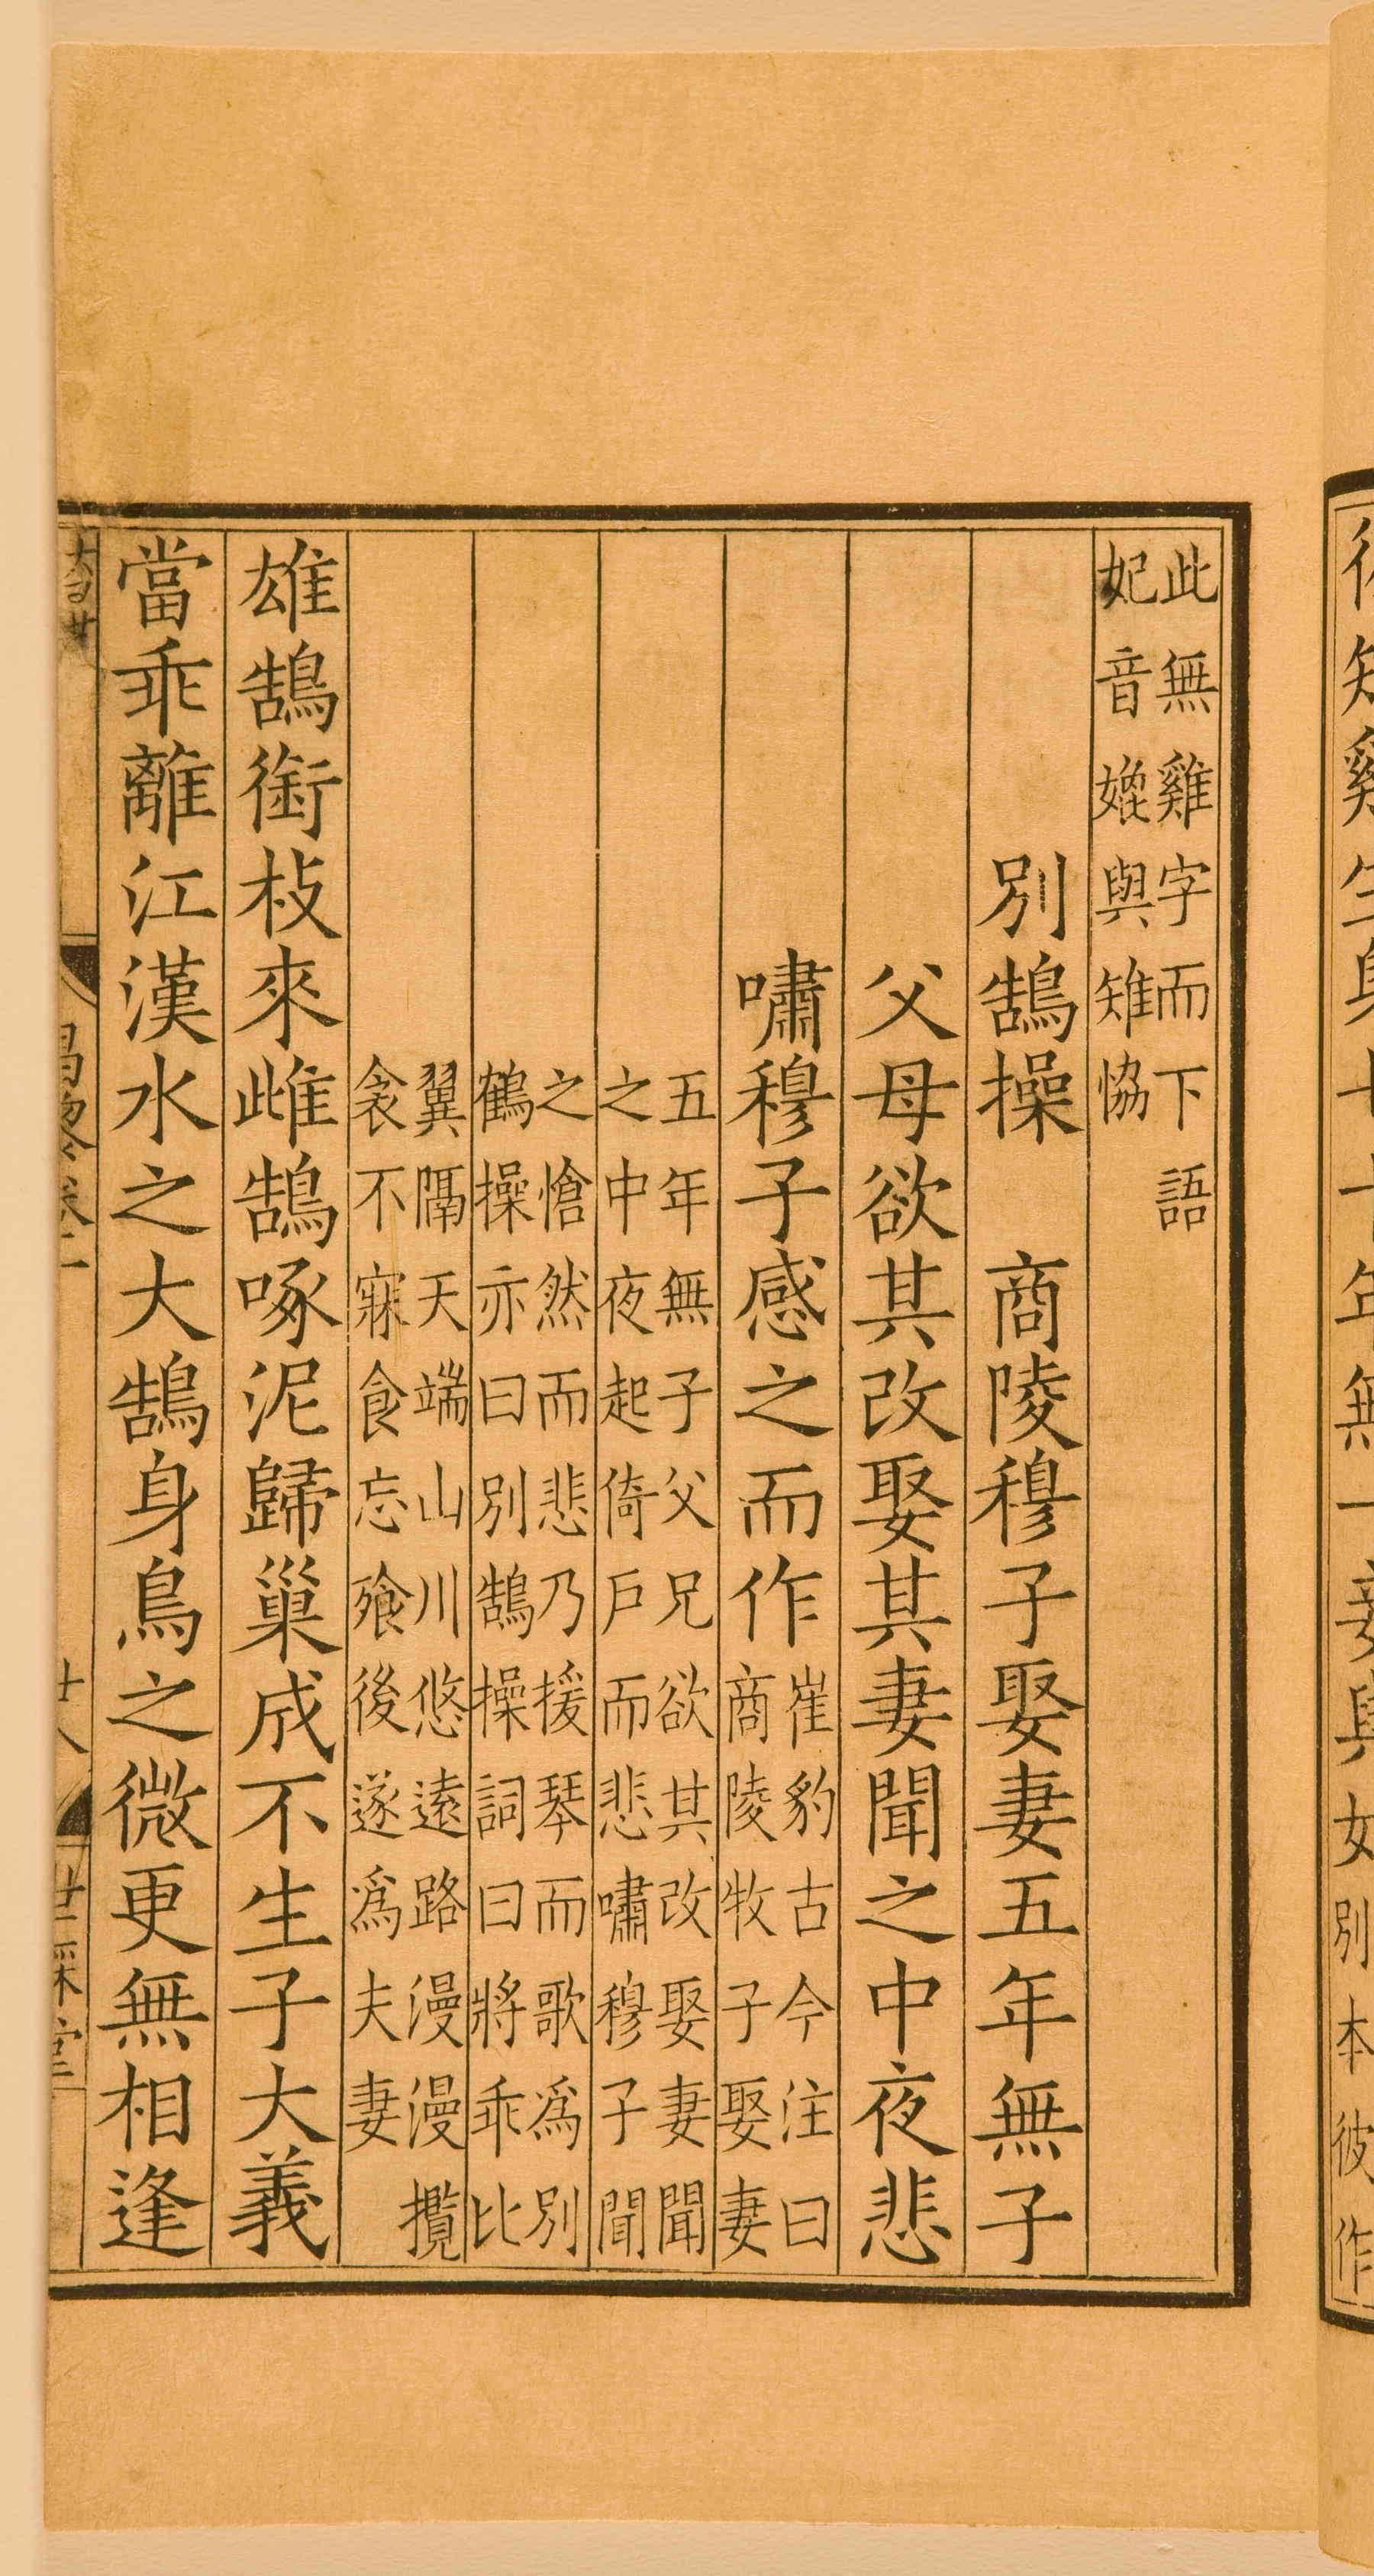 此無雞字而下語
妃音媲與雉協
別鵠操　商陵穆子娶妻五年無子
父母欲其改娶其妻聞之中夜悲
嘯穆子感之而作
崔豹古今注曰
商陵牧子娶妻
五年無子父兄欲其改娶妻聞
之中夜起倚戶而悲嘯穆子聞
之愴然而悲乃援琴而歌爲別
鶴操亦曰別鵠操詞曰將乖比
翼隔天端山川悠遠路漫漫攬
衾不寐食忘飱後遂爲夫妻
雄鵠銜枝來雌鵠啄泥歸巢成不生子大義
當乖離江漢水之大鵠身鳥之微更無相逢